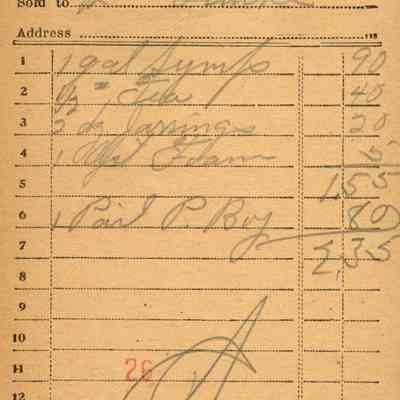 Sold to
Address
1 1 gal Syrup 90
2 1/2 " Tea 40
3 2 dz Jar rings 20
4 1 Foam 5
5 1.55
6 1 Pail P. Boy 80
7 2.35
8
9
10
11 26
12